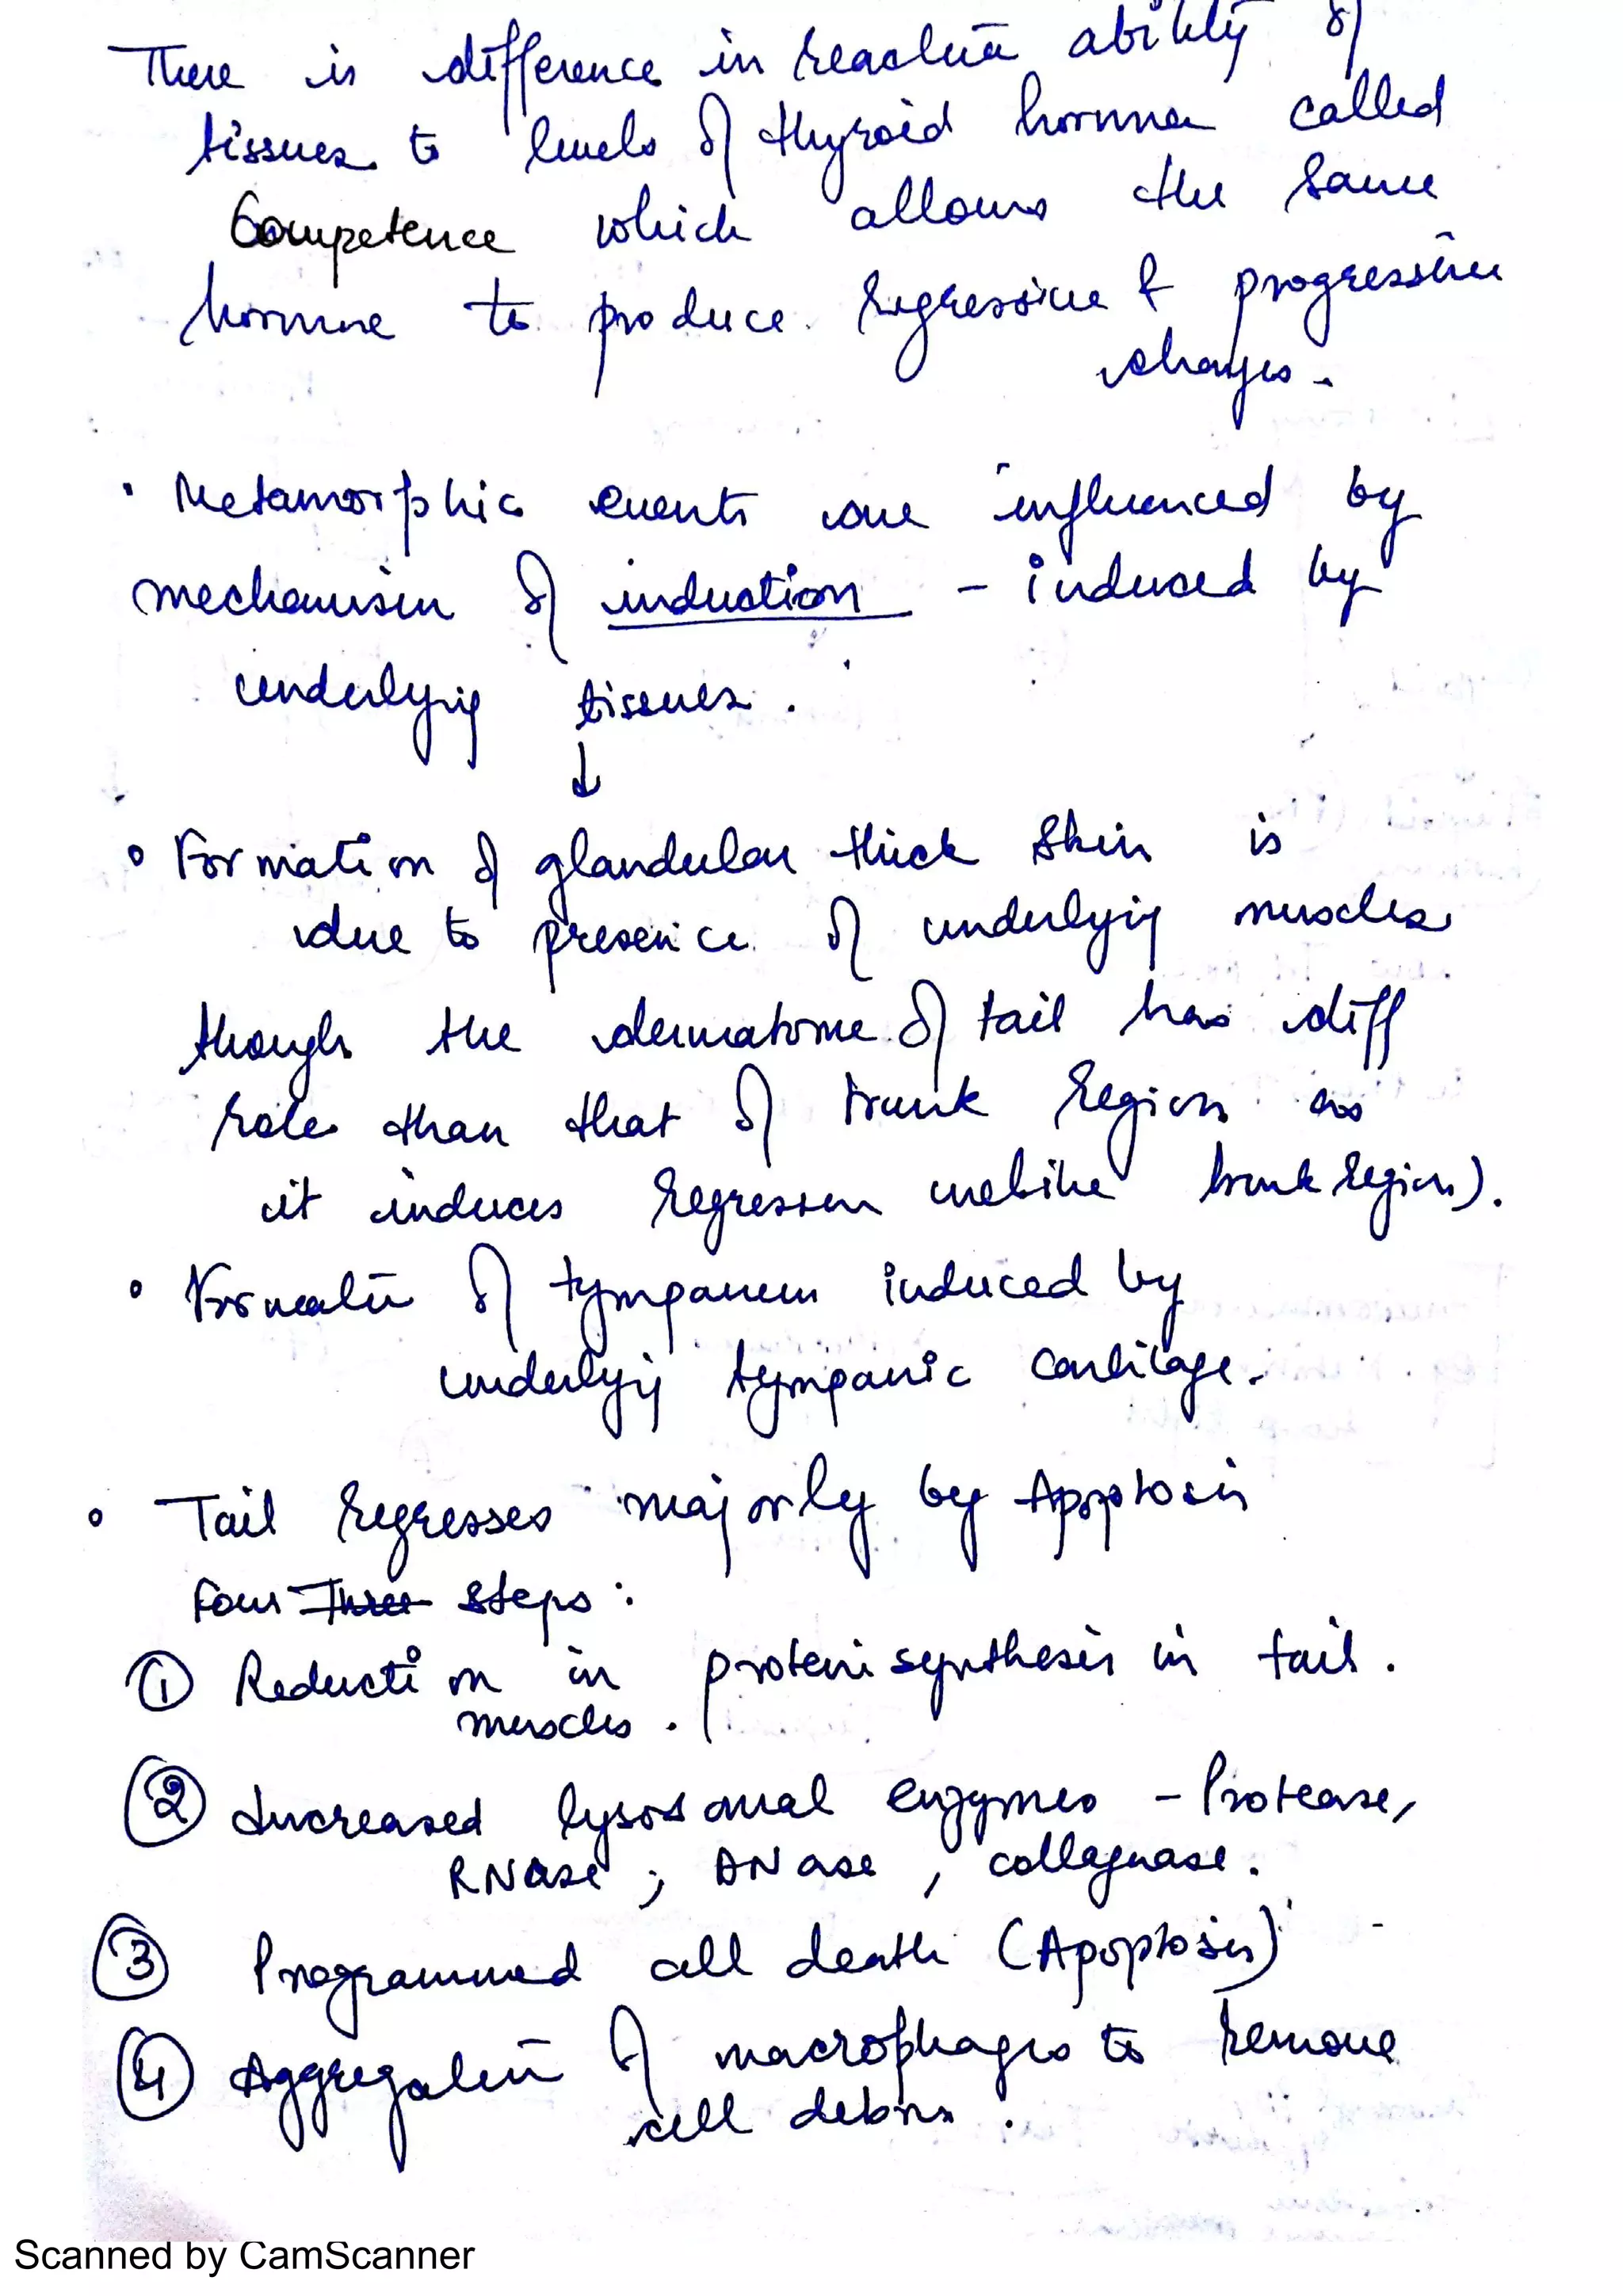 There is difference in reaction ability of
tissues to levels of thyroid hormone called
Competence which allows the same
hormone to produce regressive & progressive
changes.
• Metamorphic events are influenced by
mechanism of induction - induced by
underlying tissues.
↓
• Formation of glandular thick skin is
due to presence of underlying muscles
though the dermatome of tail has diff
role than that of trunk region as
it induces regression unlike trunk region).
• Formation of tympanum induced by
underlying tympanic cartilage.
• Tail regresses majorly by Apoptosis
Four Three steps:
① Reduction in protein synthesis in tail.
muscles.
② Increased lysosomal enzymes - Protease,
RNase ; DNase , collagnase.
③ Programmed cell death (Apoptosis)
④ Aggregation of macrophages to remove
cell debris.
Scanned by CamScanner